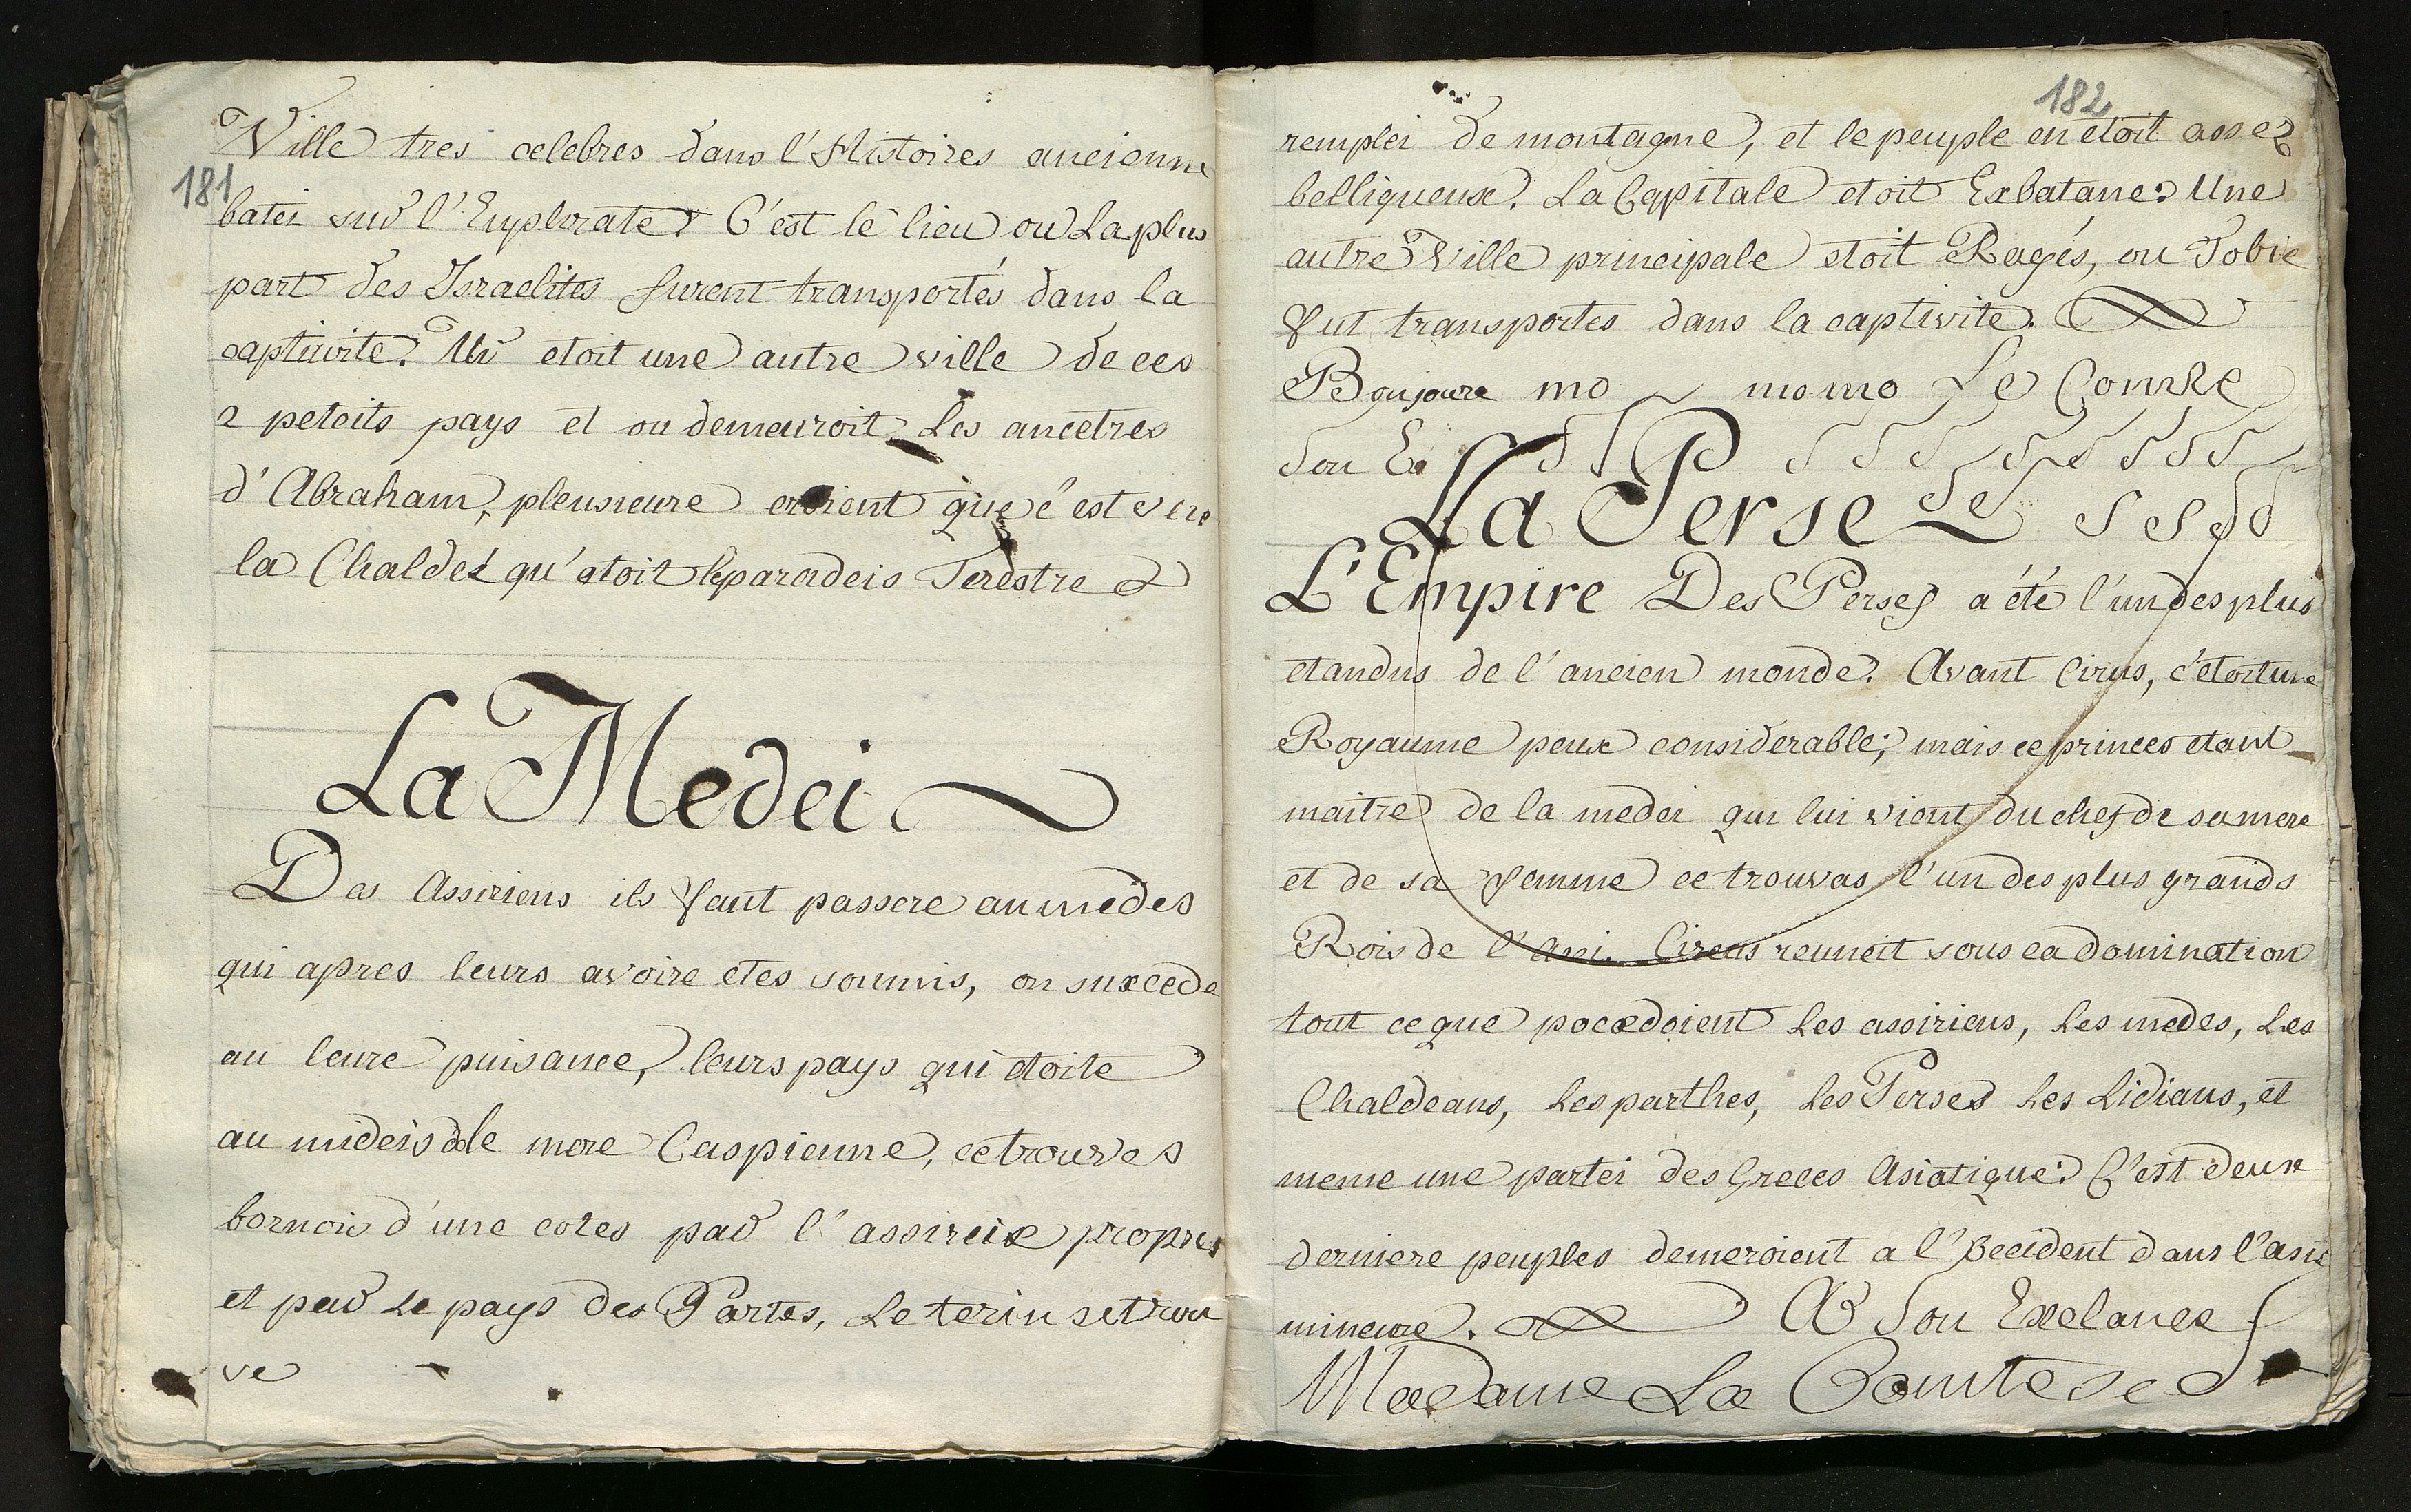 Ville tres celebres dans l'Histoires ancienne
181
batei sur l'Euphrate. C'est le lieu ou La plus
part des Israelites furent transportés dans la
captivite. Ur etoit une autre ville de ces
2 peteits pays et ou demeuroit Les ancetres
d'Abraham, pleusieure croient que c'est vers
la Chaldeé qu'etoit le paradeis Terestre
La Medei
Des Assiriens ils faut passere au medes
qui apres leurs avoire etes soumis, on suxcede
au leure puisance, leurs pays qui etoite
au mideis de le mere Caspienne, ce trouves
bornois d'une cotes par l'assireie propres
et par Le pays des Partes, Le terin se trou
ve
182
remplei de montagne, et le peuple en etoit assez
belliqueux. La Cappitale etoit Exbatane. Une
autre Ville principale etoit Ragés, ou Tobie
fut transportes dans la captivite.
Boujoure mo momo Le Comte
Sou E
La Perse
L'Empire Des Perses a été l'un des plus
etandus de l'ancien monde. Avant Cirus, c'etoit une
Royaume peux considerable; mais ce princes etant
maitre de la medei qui lui vient du chef de sa mere
et de sa femme ce trouvas l'un des plus grands
Rois de l'Asi. Cireus reuneit sous ca domination
tout ce que pocedoient Les assiriens, Les medes, Les
Chaldeans, Les parthes, Les Perses Les Lidians, et
meme une partei des Greces Asiatique. C'est deux
derniere peuples demeroient a l'Occident dans l'asie
mineure. A Sou Exelance
Madame La Comtese